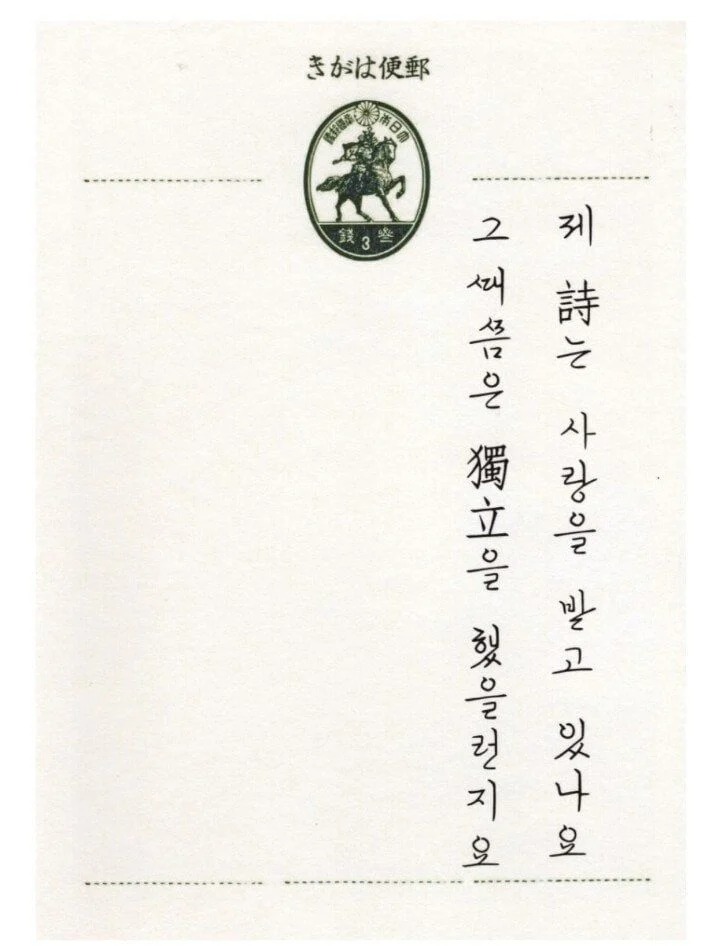 郵便はがき
大日本帝國郵便
叁3錢
제 詩는 사랑을 받고 있나요
그 때쯤은 獨立을 했을런지요